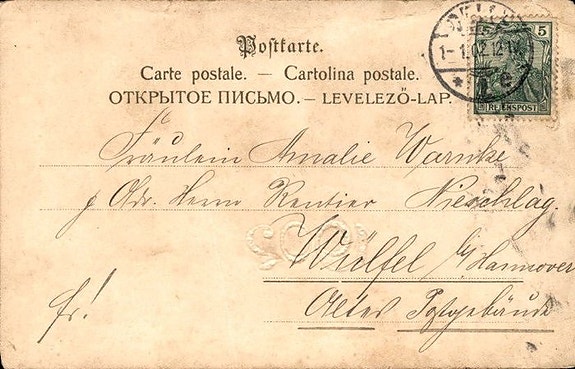 Postkarte.
Carte postale. — Cartolina postale.
ОТКРЫТОЕ ПИСЬМО. — LEVELEZŐ-LAP.
5
REICHSPOST
1-1.02.12-1N
* e *
Fräulein Amalie Warnke
Adr. Herrn Rentier Nieschlag
Wülfel b/Hannover
Altes Postgebäude
fr!